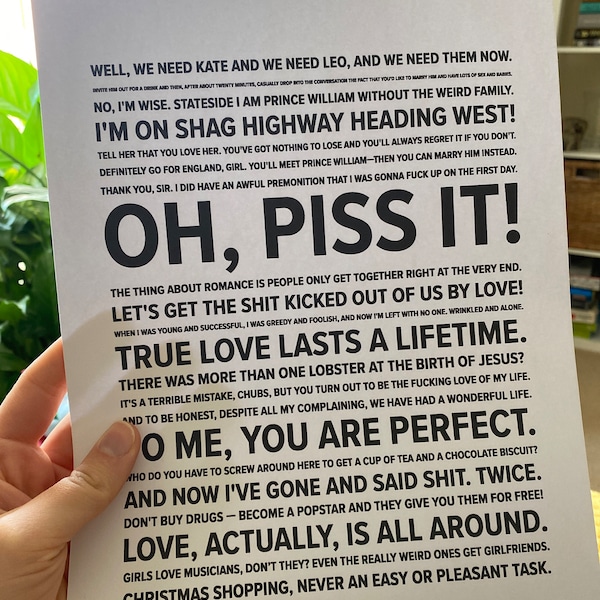 WELL, WE NEED KATE AND WE NEED LEO, AND WE NEED THEM NOW.
INVITE HIM OUT FOR A DRINK AND THEN, AFTER ABOUT TWENTY MINUTES, CASUALLY DROP INTO THE CONVERSATION THE FACT THAT YOU'D LIKE TO MARRY HIM AND HAVE LOTS OF SEX AND BABIES.
NO, I'M WISE. STATESIDE I AM PRINCE WILLIAM WITHOUT THE WEIRD FAMILY.
I'M ON SHAG HIGHWAY HEADING WEST!
TELL HER THAT YOU LOVE HER. YOU'VE GOT NOTHING TO LOSE AND YOU'LL ALWAYS REGRET IT IF YOU DON'T.
DEFINITELY GO FOR ENGLAND, GIRL. YOU'LL MEET PRINCE WILLIAM—THEN YOU CAN MARRY HIM INSTEAD.
THANK YOU, SIR. I DID HAVE AN AWFUL PREMONITION THAT I WAS GONNA FUCK UP ON THE FIRST DAY.
OH, PISS IT!
THE THING ABOUT ROMANCE IS PEOPLE ONLY GET TOGETHER RIGHT AT THE VERY END.
LET'S GET THE SHIT KICKED OUT OF US BY LOVE!
WHEN I WAS YOUNG AND SUCCESSFUL, I WAS GREEDY AND FOOLISH, AND NOW I'M LEFT WITH NO ONE. WRINKLED AND ALONE.
TRUE LOVE LASTS A LIFETIME.
THERE WAS MORE THAN ONE LOBSTER AT THE BIRTH OF JESUS?
IT'S A TERRIBLE MISTAKE, CHUBS, BUT YOU TURN OUT TO BE THE FUCKING LOVE OF MY LIFE.
AND TO BE HONEST, DESPITE ALL MY COMPLAINING, WE HAVE HAD A WONDERFUL LIFE.
TO ME, YOU ARE PERFECT.
WHO DO YOU HAVE TO SCREW AROUND HERE TO GET A CUP OF TEA AND A CHOCOLATE BISCUIT?
AND NOW I'VE GONE AND SAID SHIT. TWICE.
DON'T BUY DRUGS — BECOME A POPSTAR AND THEY GIVE YOU THEM FOR FREE!
LOVE, ACTUALLY, IS ALL AROUND.
GIRLS LOVE MUSICIANS, DON'T THEY? EVEN THE REALLY WEIRD ONES GET GIRLFRIENDS.
CHRISTMAS SHOPPING, NEVER AN EASY OR PLEASANT TASK.